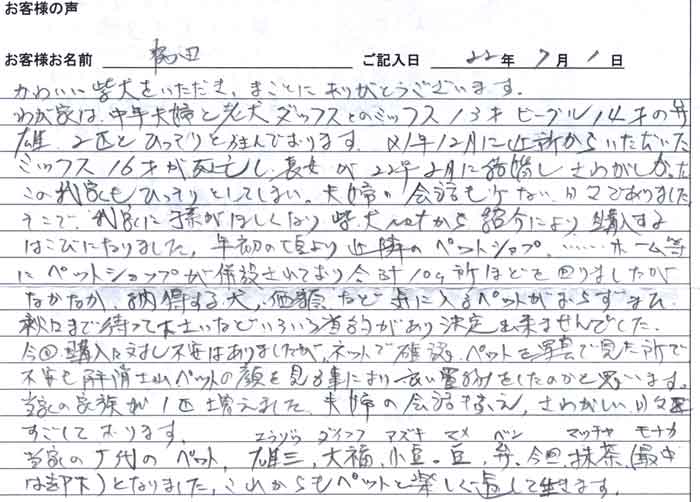 お客様の声
お客様お名前 梅田 ご記入日 22年 7月 1日
かわいい柴犬をいただき、まことにありがとうございます。
わが家は、中年夫婦と老犬ダックスとのミックス13才 ビーグル14才の
雄、2匹とひっそりと住んでおります。21年12月に近所からいただいた
ミックス16才が死亡し、長女が22年2月に結婚しさわがしかった
この我家もひっそりとしてしまい、夫婦の会話も少ない日々でありました。
そこで、我家に孫がほしくなり柴犬netから紹介により購入する
はこびになりました。年初の頃より近隣のペットショップ、……ホーム等
にペットショップが併設されており合計10ヶ所ほどを回りましたが
なかなか、納得する犬、価額など気に入るペットがおらず
秋口まで待って下さいなどいろいろ制約があり決定出来ませんでした。
今回購入に対し不安はありましたが、ネットで確認、ペットを写真で見た所で
不安も解消されペットの顔を見る事により良い買物をしたのかと思います。
当家の家族が1匹増えました。夫婦の会話も増え、さわがしい日々を
すごしております。
ユウゾウ ダイフク アズキ マメ ベン マッチャ モナカ
当家の歴代のペット、雄三、大福、小豆、豆、弁、今回抹茶、(最中
は却下)となりました。これからもペットと楽しく過して生きます。